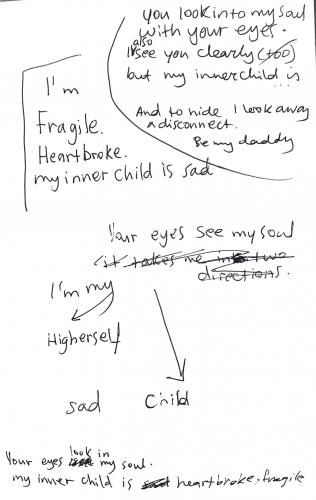 you look into my soul
with your eyes.
I also see you clearly (too)
but my innerchild is
...
And to hide I look away
a disconnect.
Be my daddy
I'm
Fragile.
Heartbroke.
my inner child is sad
Your eyes see my soul
it takes me into two
directions.
I'm my
Higherself
sad Child
Your eyes look in my soul.
my inner child is sad heartbroke, fragile